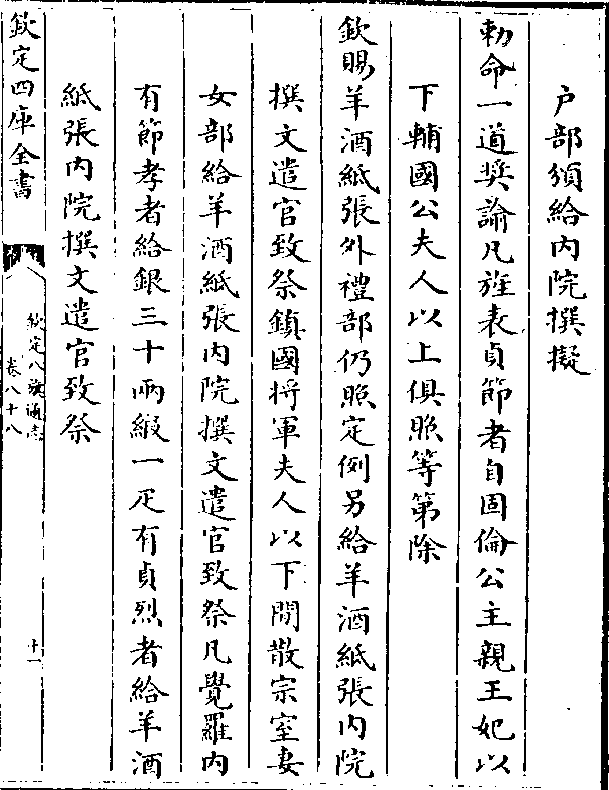 户部頒給内院撰擬
勅命一道奨諭凡旌表貞節者自固倫公主親王妃以
下輔國公夫人以上俱照等第除
欽賜羊酒紙張外禮部仍照定例另給羊酒紙張内院
撰文遣官致祭鎮國将軍夫人以下閒散宗室妻
女部給羊酒紙張内院撰文遣官致祭凡覺羅内
有節孝者給銀三十兩緞一疋有貞烈者給羊酒
紙張内院撰文遣官致祭
欽定四庫全書
欽定八旗通志
卷八十八
十一